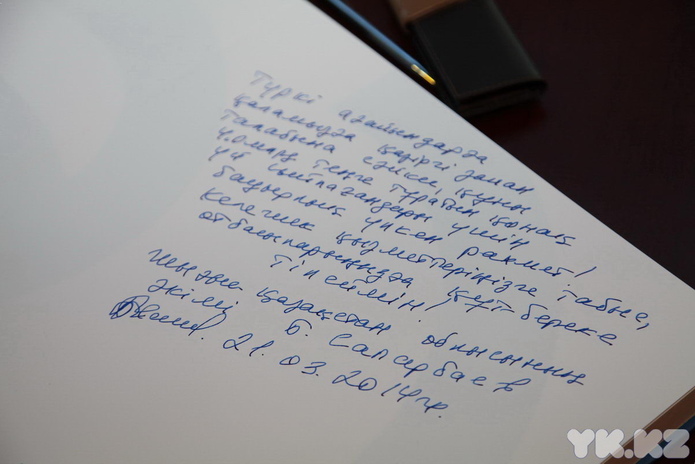 Түркі ағайындарға
қаламызға қазіргі заман
талабына сәйкес, құны
4.0 млрд теңге тұратын қонақ
үй сыйлағандары үшін
бауырлық үлкен рахмет!
Келешек қызметтеріңізге табыс,
отбасыларыңызға құт-береке
тілеймін!
Шығыс Қазақстан облысының
әкімі Б. Сапарбаев
21.03.2014жг.
YK.KZ